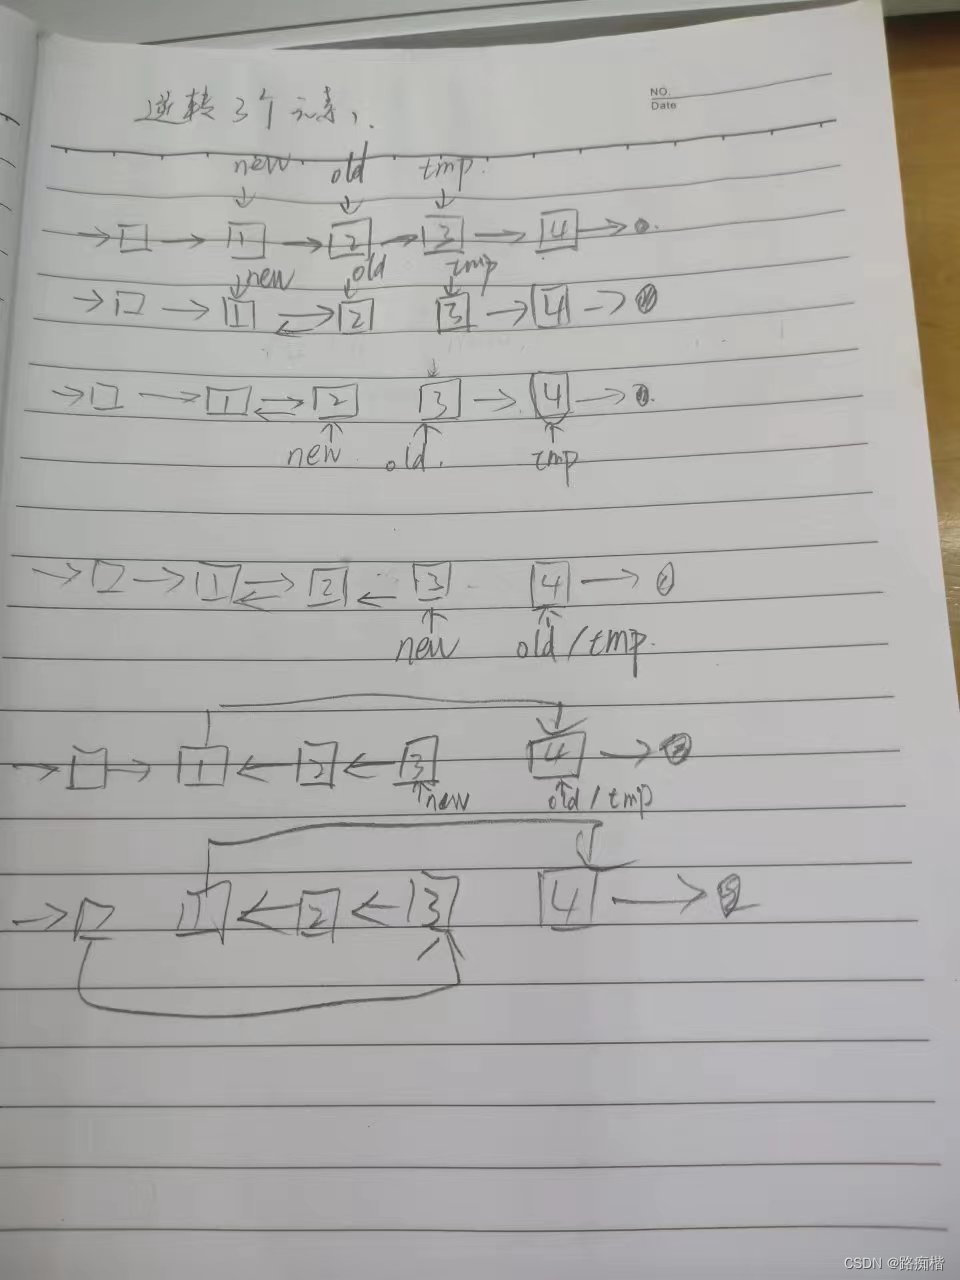 逆转3个元素,.
NO.
Date
new old tmp.
1 2 3 4
new old tmp
1 2 3 4
1 2 3 4
new old. tmp
1 2 3 4
new old/tmp.
1 2 3 4
new old/tmp
1 2 3 4
CSDN @路痴楷